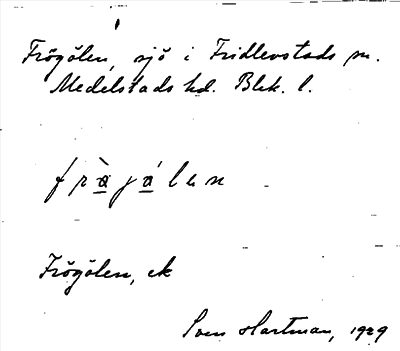 Frögölen, sjö i Fridlevstads sn.
Medelstads hd. Blek. l.
frò̱jó̱len
Frögölen, ek
Sven Hartman, 1929